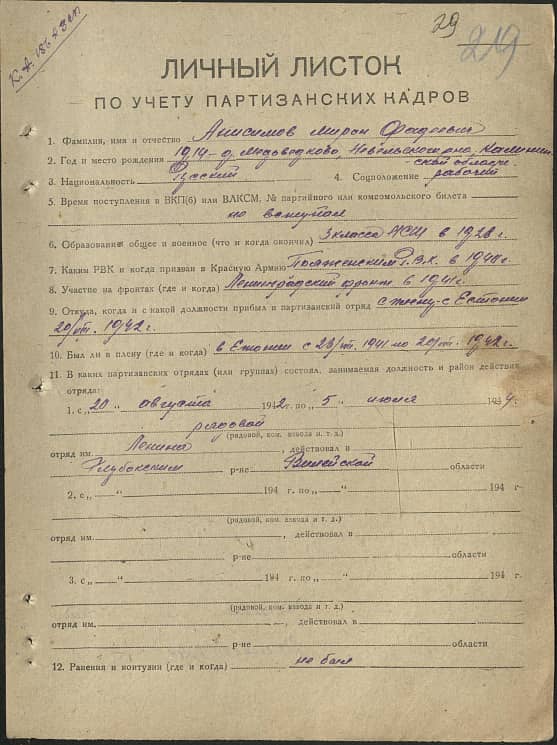 29
219
ЛИЧНЫЙ ЛИСТОК
ПО УЧЕТУ ПАРТИЗАНСКИХ КАДРОВ
1. Фамилия, имя и отчество Анисимов Мирон Фадеевич
2. Год и место рождения 1914 – д. Медведково, Невельского р-на, Калинин-
ской области.
3. Национальность Русский 4. Соцположение рабочий
5. Время поступления в ВКП(б) или ВЛКСМ, № партийного или комсомольского билета
не вступал
6. Образование общее и военное (что и когда окончил) 3 класса НСШ в 1928 г.
7. Каким РВК и когда призван в Красную Армию Р.В.К. в 1940 г.
8. Участие на фронтах (где и когда) Ленинградский фронт в 1941 г.
9. Откуда, когда и с какой должности прибыл в партизанский отряд с плену – с Естонии
20/VIII. 1942 г.
10. Был ли в плену (где и когда) в Естонии с 28/VIII. 1941 по 20/VIII. 1942 г.
11. В каких партизанских отрядах (или группах) состоял, занимаемая должность и район действия
отряда:
1. с „20“ августа 1942 г. по „5“ июля 1944 г.
рядовой
(рядовой, ком. взвода и т. д.)
отряд им. Ленина, действовал в
Глубокским р-не Вилейской области
2. с „ “ 194 г. по „ “ 194
(рядовой, ком. взвода и т. д.)
отряд им. , действовал в
р-не области
3. с „ “ 194 г. по „ “ 194
(рядовой, ком. взвода и т. д.)
отряд им. , действовал в
р-не области
12. Ранения и контузии (где и когда) не был